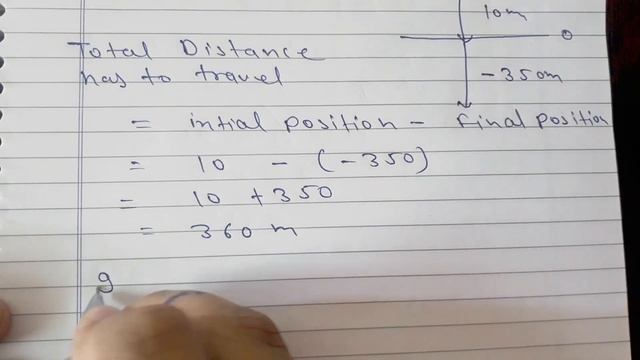 10m
Total Distance
0
has to travel
-350m
= intial position - final position
= 10 - (-350)
= 10 + 350
= 360 m
g